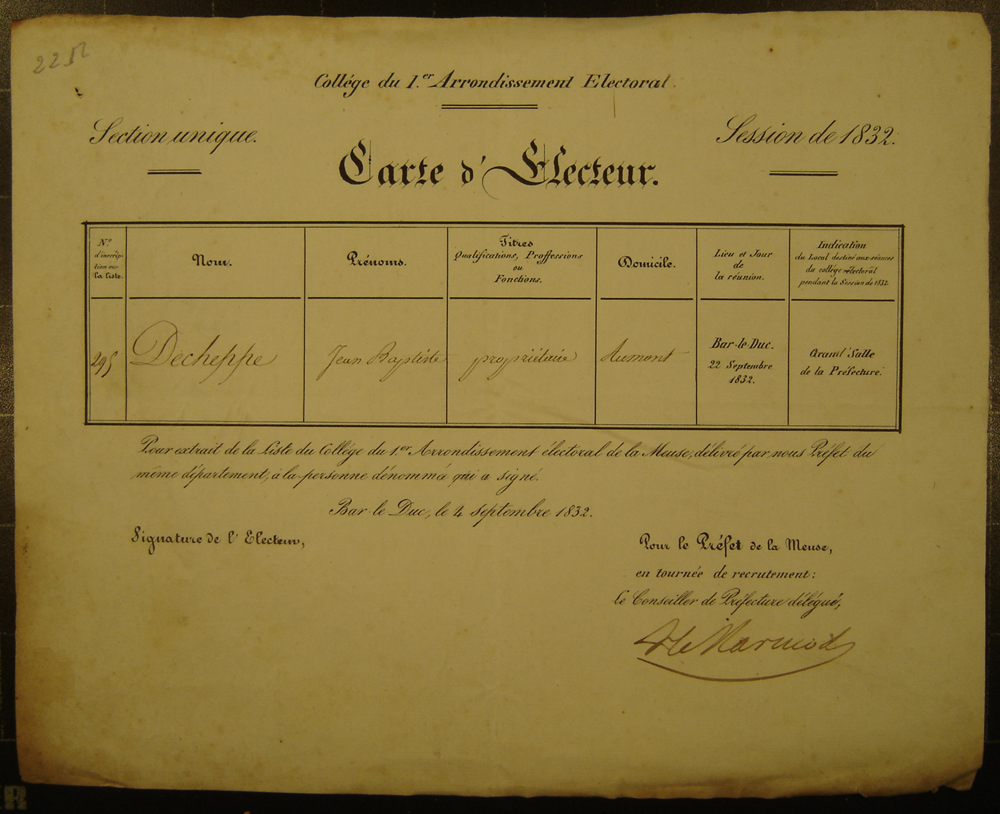 Collége du 1.er Arrondissement Electoral.
Section unique.
Session de 1832.
Carte d'Electeur.
N.º
d'inscrip-
tion sur
la liste.
Nom.
Prénoms.
Titres
Qualifications, Proffessions
ou
Fonctions.
Domicile.
Lieu et Jour
de
la réunion.
Indication
du Local destiné aux séances
du collége électoral
pendant la Session de 1832.
295
Decheppe
Jean Baptiste
propriétaire
Aumont
Bar-le-Duc.
22 Septembre
1832.
Grand' Salle
de la Préfecture.
Pour extrait de la Liste du Collége du 1.er Arrondissement électoral de la Meuse, délivré par nous Préfet du
même département, à la personne dénommée qui a signé.
Bar le Duc, le 4 septembre 1832.
Signature de l'Electeur,
Pour le Préfet de la Meuse,
en tournée de recrutement:
Le Conseiller de Préfecture délégué,